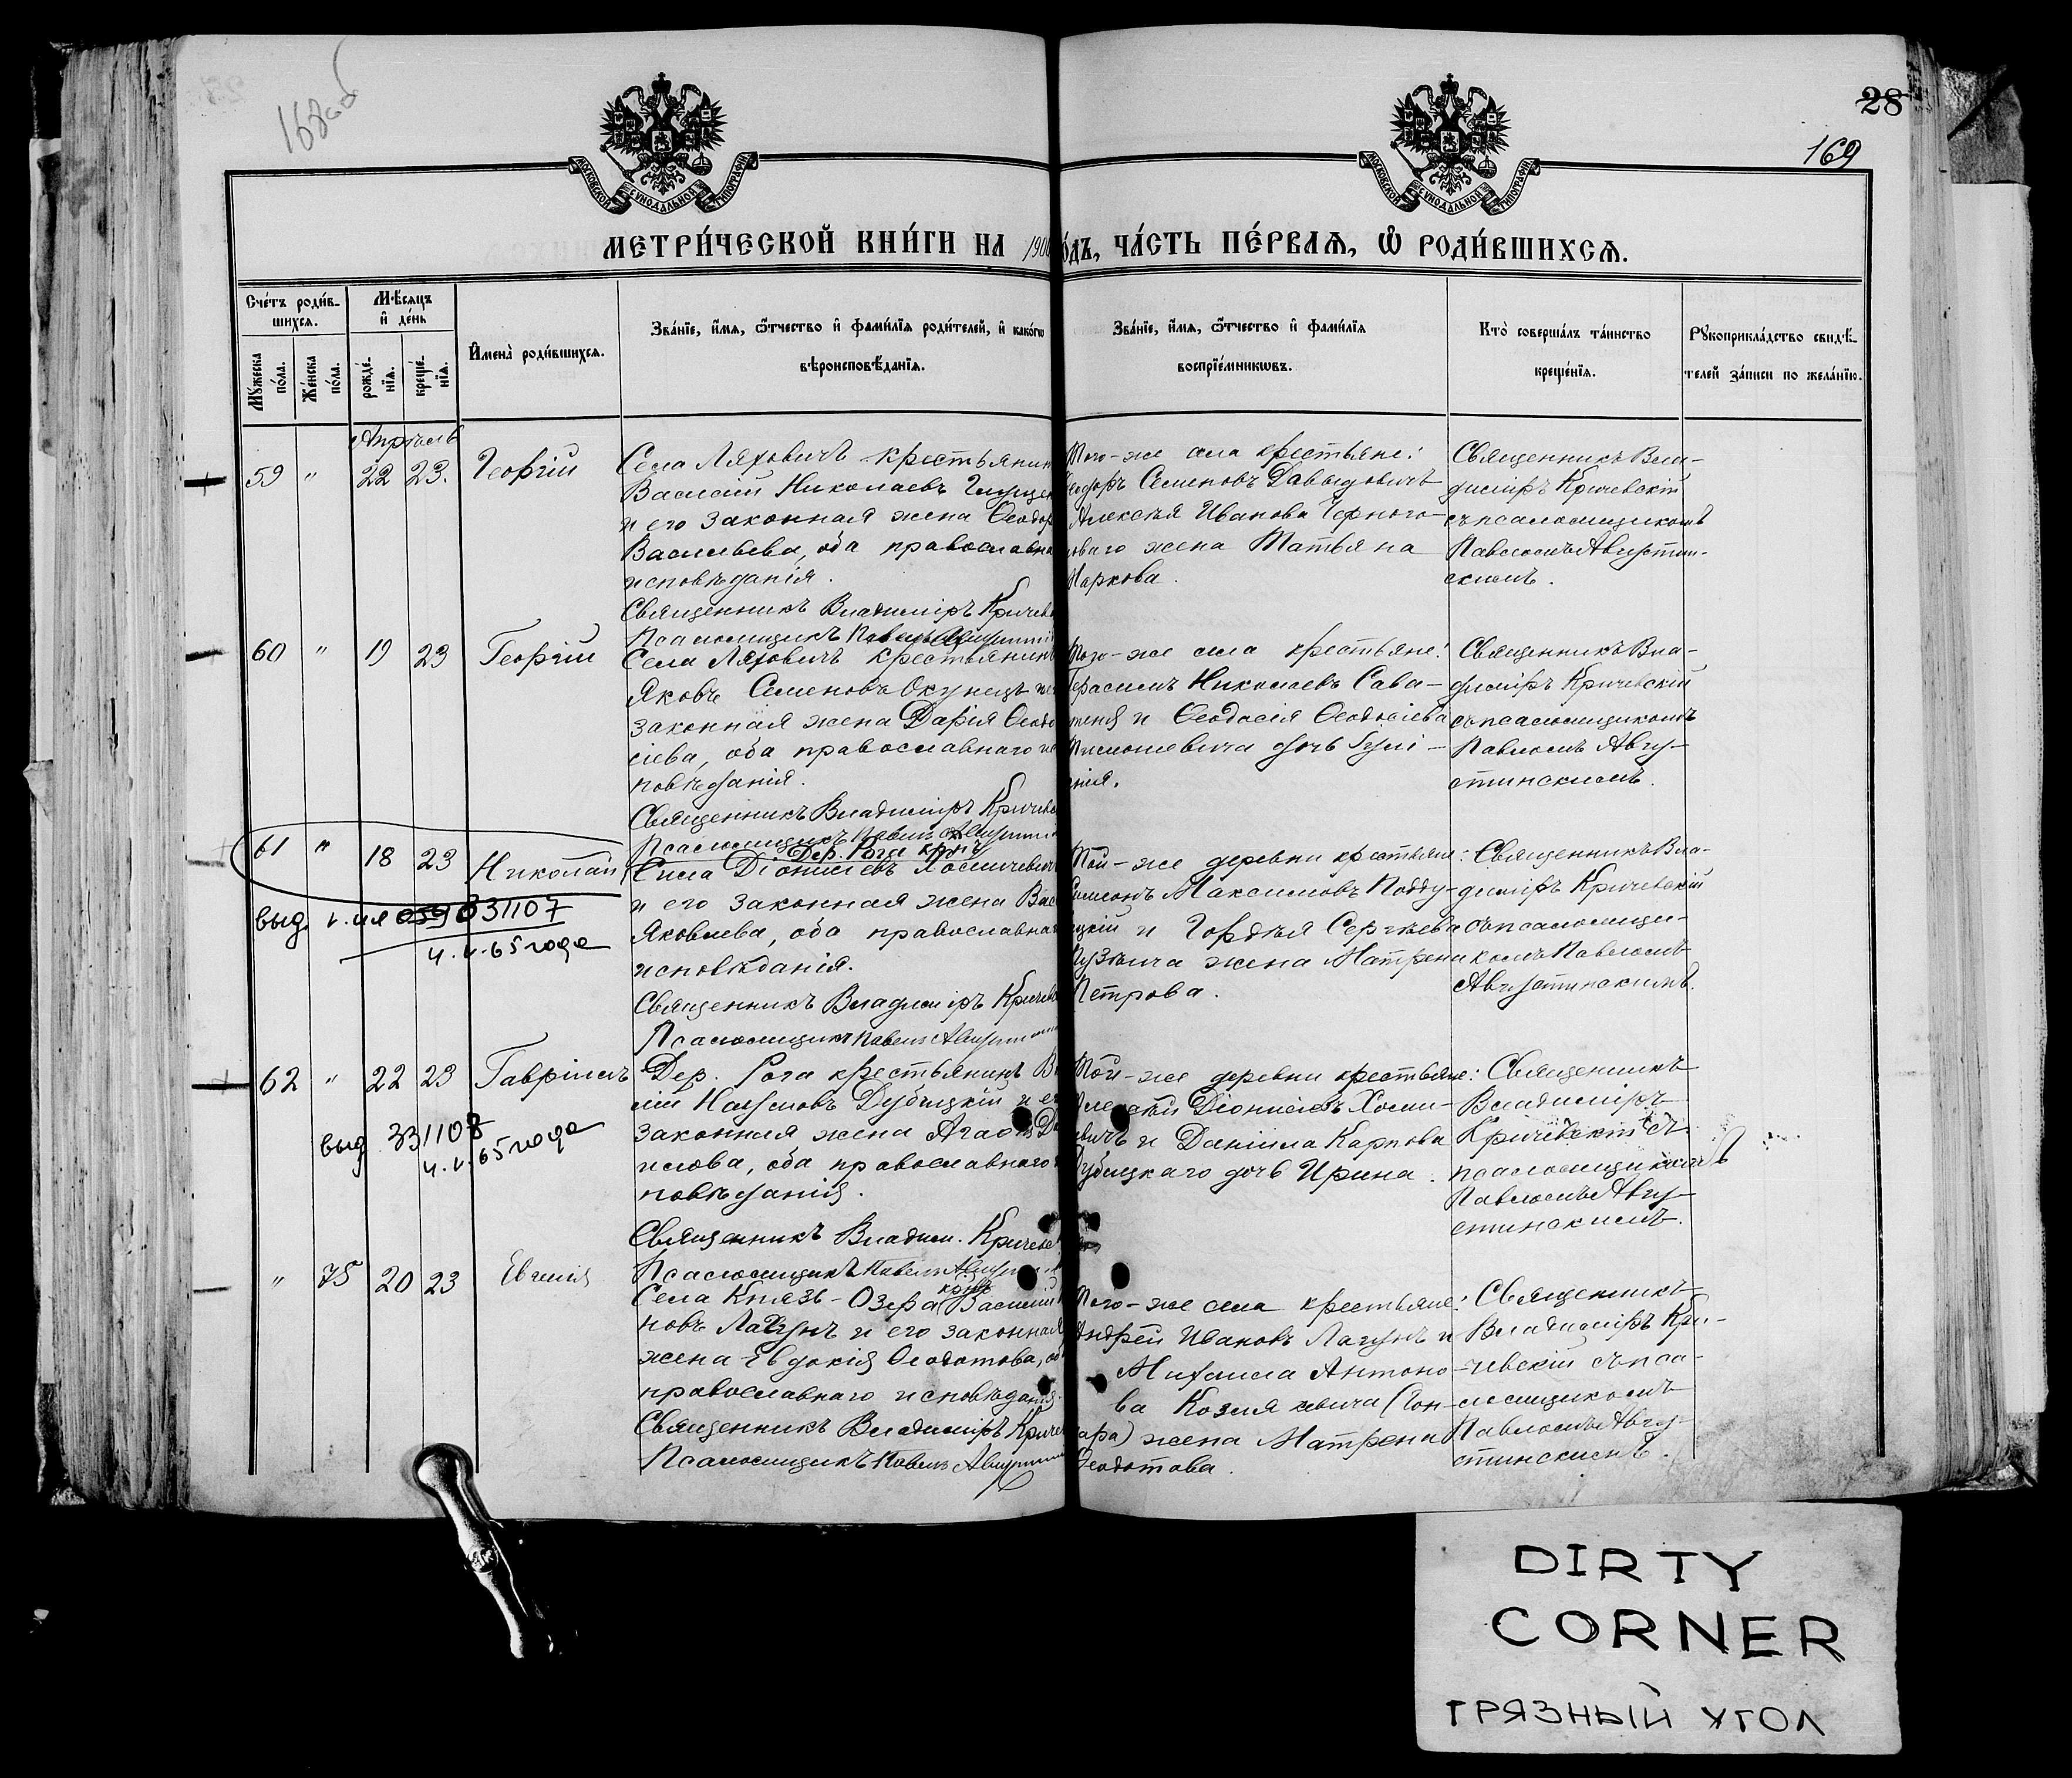 168об
28
169
МОСКОВСКОЙ СѴНОДАЛЬНОЙ ТИПОГРАФІИ
МОСКОВСКОЙ СѴНОДАЛЬНОЙ ТИПОГРАФІИ
МЕТРИ́ЧЕСКОЙ КНИ́ГИ НА 1900 о́дъ, ЧА́СТЬ ПЕ́РВАѦ, Ѽ РОДИ́ВШИХСѦ.
Сче́тъ роди́в-
шихсѧ.
Мѣ́сѧцъ
и҆ де́нь
Мꙋ́жеска
по́ла.
Же́нска
по́ла.
рожде́-
нїѧ.
креще́-
нїѧ.
И҆мена̀ роди́вшихсѧ.
Зва́нїе, и҆́мѧ, ѻ҆́тчество и҆ фами́лїѧ роди́телей, и҆ како́гѡ
вѣроисповѣ́данїѧ.
Зва́нїе, и҆́мѧ, ѻ҆́тчество и҆ фами́лїѧ
воспрїе́мникѡвъ.
Кто̀ соверша́лъ та́инство
креще́нїѧ.
Рꙋкоприкла́дство свидѣ́-
телей за́писи по жела́нїю.
Апрѣль
59 " 22 23. Георгій
Села Ляховичъ крестьянин
Василій Николаевъ
и его законная жена Ѳеодор
Васильева, оба православна
исповѣданія.
Священникъ Владиміръ Кричев
Псаломщикъ Павелъ Августи
Того-же села крестьяне:
Ѳедоръ Семеновъ Давыдовичъ
Алексѣя Иванова Черного-
ловаго жена Татьяна
Маркова.
Священникъ Вла-
диміръ Кричевскій
съ псаломщикомъ
Павломъ Августин-
скимъ.
60 " 19 23 Георгій
Села Ляховичъ крестьянинъ
Яковъ Семеновъ Окунецъ и е
законная жена Дарія Ѳеодо
сіева, оба православнаго ис
повѣданія.
Священникъ Владиміръ Кричевс
Псаломщикъ Павелъ Августи
Того-же села крестьяне:
Герасимъ Николаевъ Сава-
теня и Ѳеодосія Ѳеодосіева
дочь Іулі-
анія.
Священникъ Вла-
диміръ Кричевскій
съ псаломщикомъ
Павломъ Авгу-
стинскимъ.
61 " 18 23 Николай
Дер. Рога крнъ
Сила Діонисіевъ Хосмичевич
и его законная жена Вас
Яковлева, оба православна
исповѣданія.
Священникъ Владиміръ Кричев
Псаломщикъ Павелъ Августи
Той-же деревни крестьяне:
Симеонъ Максимовъ Подду-
цкій и Гордѣя Сергѣева
жена Матрена
Петрова.
Священникъ Вла-
диміръ Кричевскій
съ псаломщи-
комъ Павломъ
Августинскимъ.
выд. 031107
65 года
62 " 22 23 Гавріилъ
Дер. Рога крестьянинъ В
лій Наумовъ Дубицкій и ег
законная жена Агаѳія Да
нилова, оба православнаго
повѣданія.
Священникъ Владим. Кричевс
Псаломщикъ Павелъ Августи
Той-же деревни крестьяне:
Алексѣй Діонисіевъ Хосми-
чевичъ и Даніила Карпова
Дубицкаго дочь Ирина.
Священникъ
Владиміръ
Кричевскій съ
псаломщикомъ
Павломъ Авгу-
стинскимъ.
выд 331108
65 года
" 75 20 23 Евгенія
Села Князь-Озера крнъ Василій
новъ Лагунъ и его законная
жена Евдокія Ѳеодотова, об
православнаго исповѣданія.
Священникъ Владиміръ Кричев
Псаломщикъ Павелъ Августин
Того-же села крестьяне:
Андрей Ивановъ Лагунъ и
Михаила Антоно-
ва Козлякевича (Гон-
чара) жена Матрена
Ѳеодотова.
Священникъ
Владиміръ Кри-
чевскій съ пса-
ломщикомъ
Павломъ Авгу-
стинскимъ.
DIRTY
CORNER
ГРЯЗНЫЙ УГОЛ